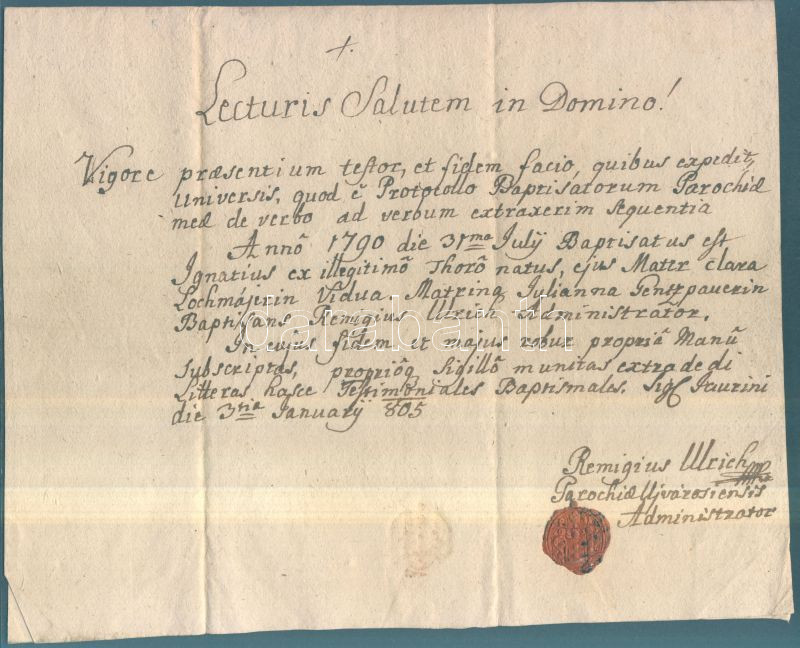 +.
Lecturis Salutem in Domino!
Vigore præsentium testor, et fidem facio, quibus expedit,
Universis, quod ē Protocollo Baptisatorum Parochiæ
meæ de verbo ad verbum extraxerim sequentia
Annô 1790 die 31ma Julij Baptisatus est
Ignatius ex illegitimô Thorô natus, ejus Mater clara
Lochmájerin Vidua. Matrina Julianna Gentzpauerin
Baptisans Remigius Ulrich Administrator.
In cujus fidem et majus robur propriâ Manû
Subscriptas, propriôq Sigillô munitas extradedi
Litteras hasce Testimoniales Baptismales. Sig Jaurini
die 3tia January 805
Remigius Ulrich
Parochiæ Ujvárosiensis
Administrator
darabanth